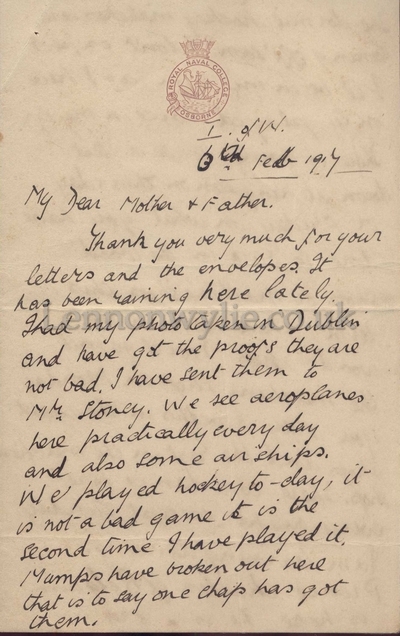 ROYAL NAVAL COLLEGE
OSBORNE
I. of W.
Feb 1917
My Dear Mother & Father.
Thank you very much for your
letters and the envelopes. It
has been raining here lately.
I had my photo taken in Dublin
and have got the proofs they are
not bad. I have sent them to
Mr. Stoney. We see aeroplanes
here practically every day
and also some airships.
We played hockey to-day, it
is not a bad game it is the
second time I have played it.
Mumps have broken out here
that is to say one chap has got
them.
Lennonwylie.co.uk